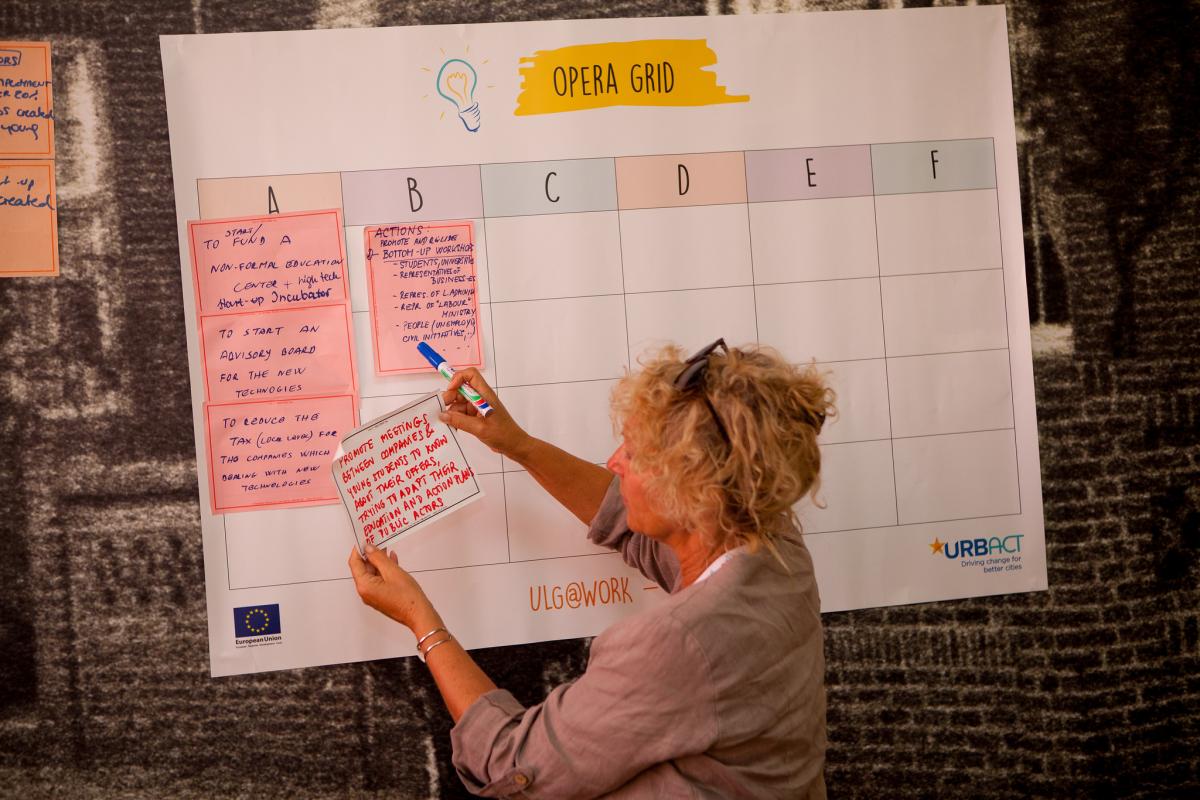 ORS
MPLOYMENT
ER 20%
S created
young
t up
created
OPERA GRID
A
B
C
D
E
F
START/
TO FUND A
NON-FORMAL EDUCATION
CENTER + high tech
Start-up Incubator
TO START AN
ADVISORY BOARD
FOR THE NEW
TECHNOGIES
TO REDUCE THE
TAX (LOCAL LEVEL) FOR
THE COMPANIES WHICH
DEALING WITH NEW
TECHNOLOGIES
ACTIONS:
PROMOTE AND
BOTTOM-UP WORKSHOP
- STUDENTS, UNIVERSITIE
- REPRESENTATIVES OF
BUSINESS-ES
- REPRES. OF L.ADMINI
- REPR OF "LABOUR"
MINISTRY
- PEOPLE (UNEMPLOYE
CIVIL INITIATIVES, ..)
PROMOTE MEETINGS
BETWEEN COMPANIES &
YOUNG STUDENTS TO KNOW
ABOUT THEIR OFFERS,
TRYING TO ADAPT THEIR
EDUCATION AND ACTION PLANS
OF PUBLIC ACTORS
ULG@WORK –
URBACT
Driving change for
better cities
European Union